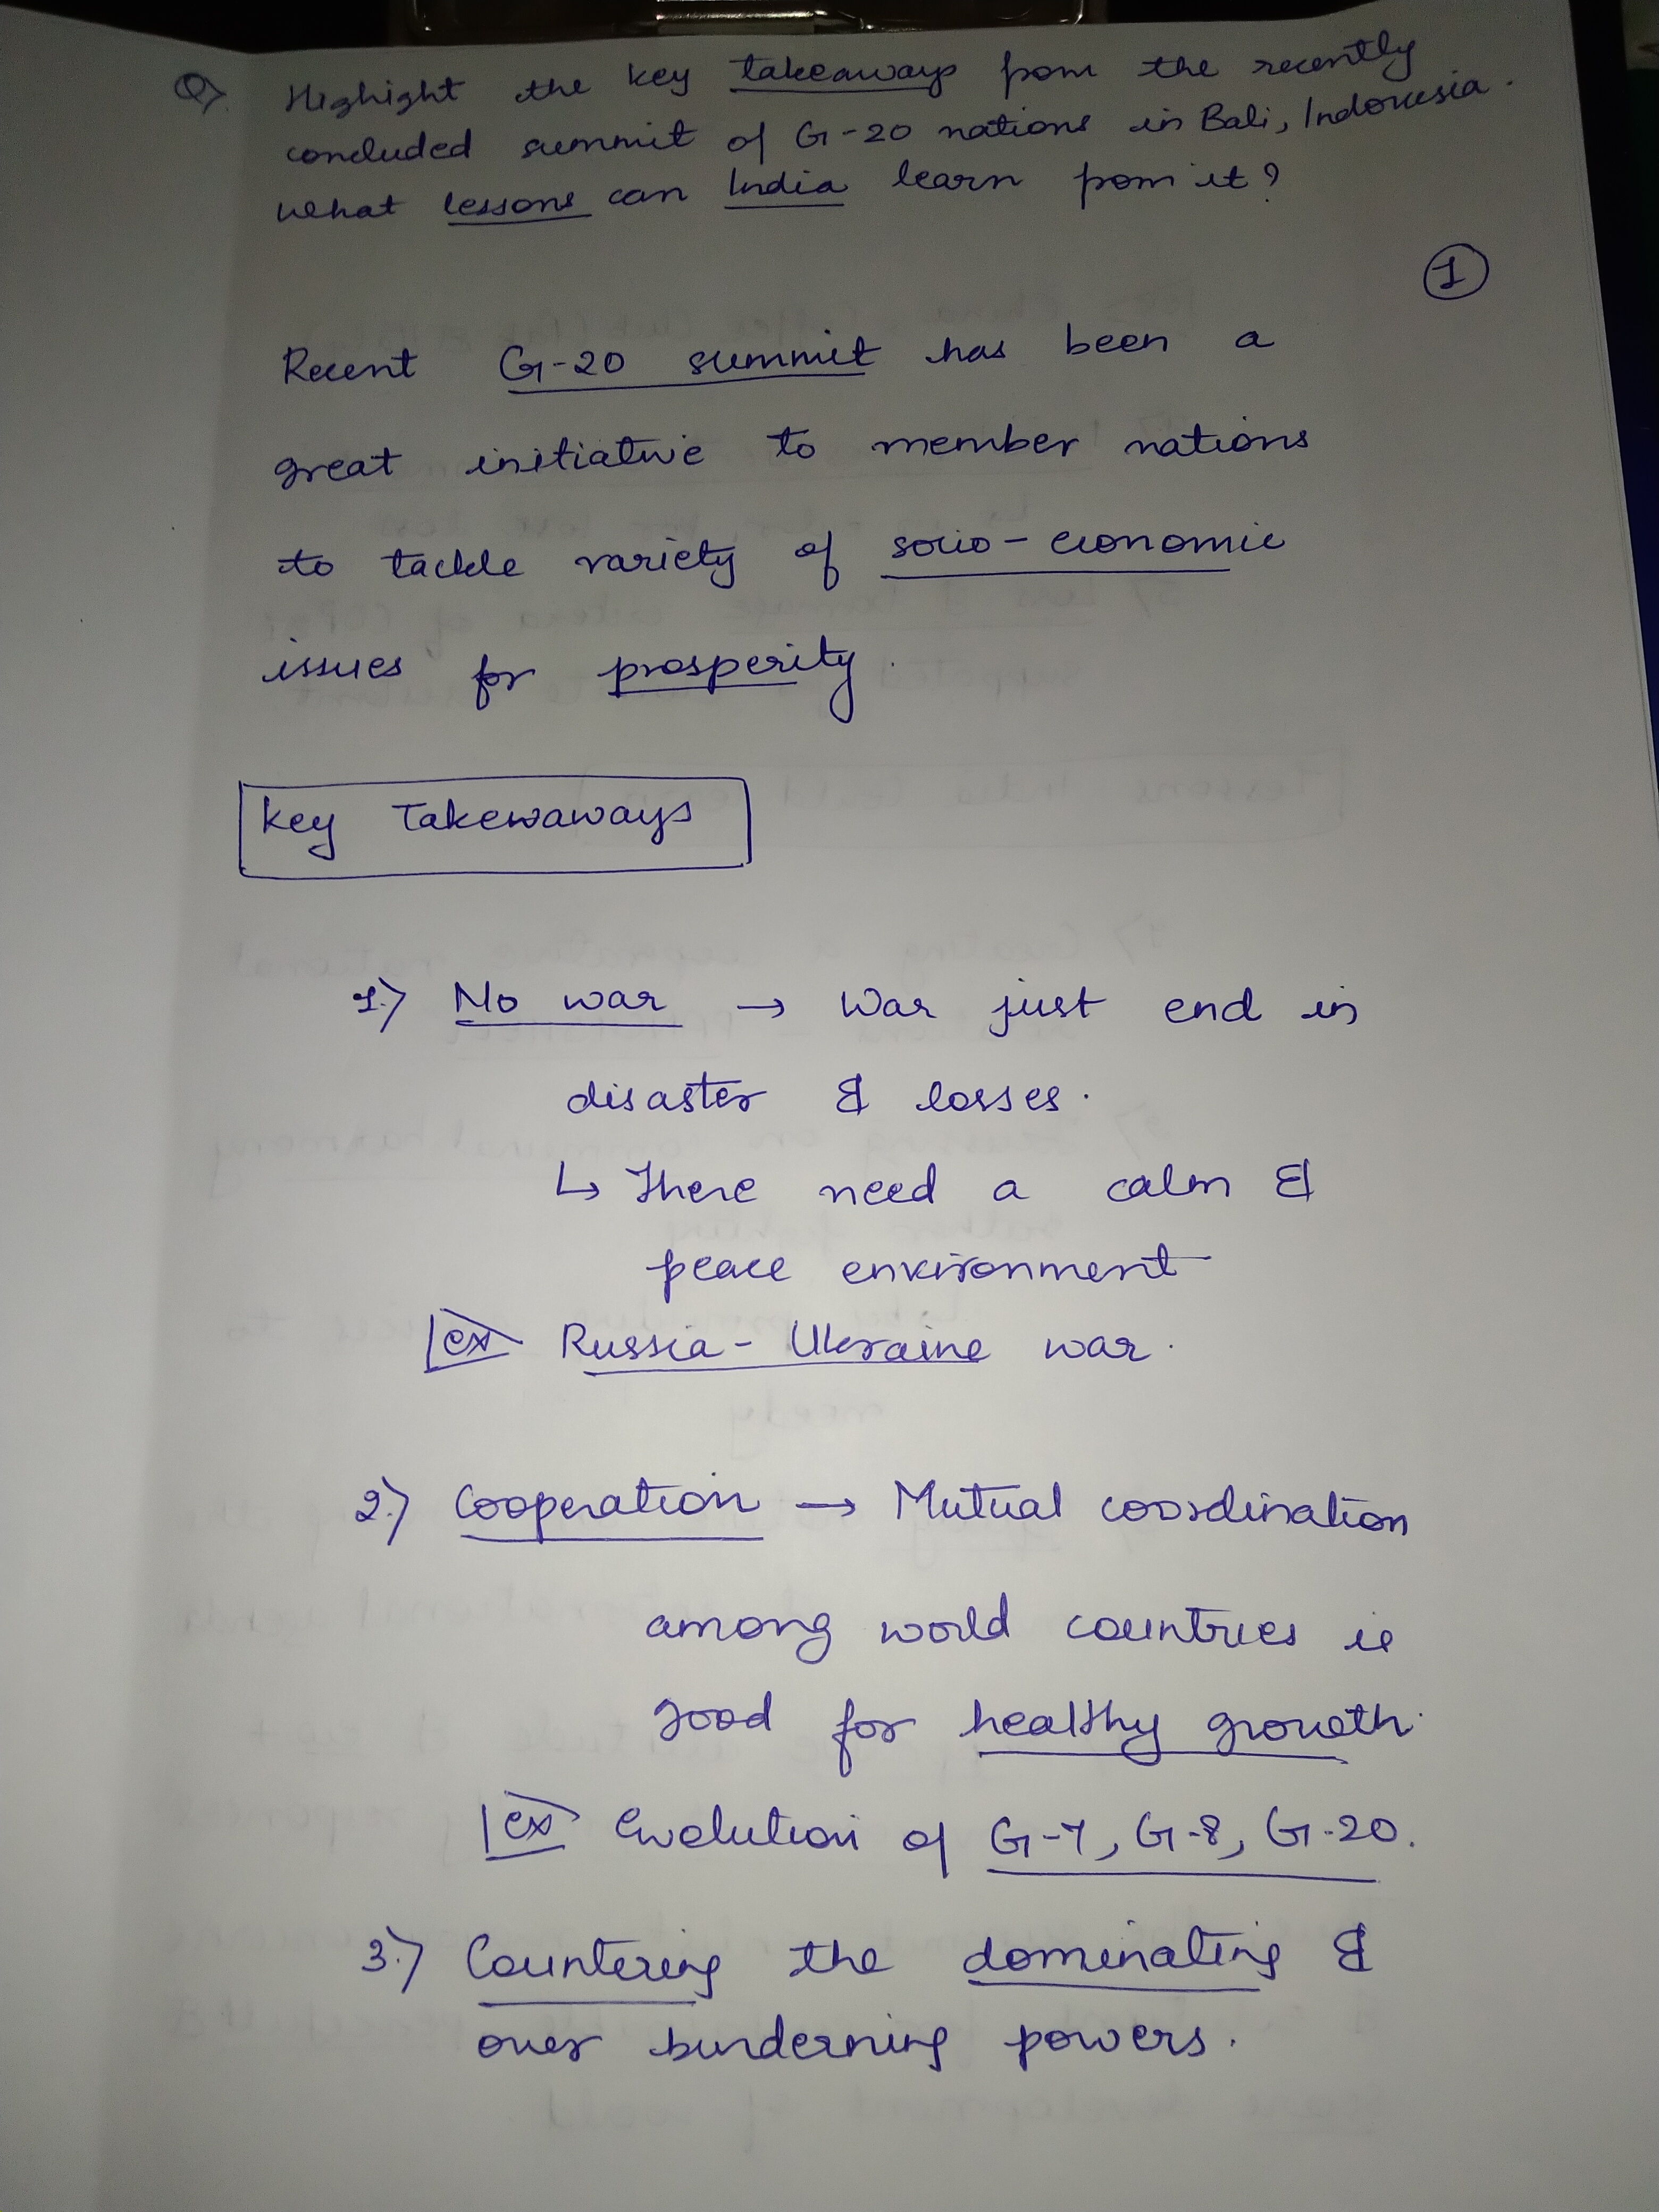 Q) Highight the key takeaways from the recently
concluded summit of G-20 nations in Bali, Indonesia.
what lessons can India learn from it?
1
Recent G-20 summit has been a
great initiative to member nations
to tackle variety of socio-economic
issues for prosperity.
Key Takewaways
1.) No war → War just end in
disaster & losses.
↳ There need a calm &
peace environment
ex Russia-Ukraine war.
2.) Cooperation → Mutual coordination
among world countries is
good for healthy growth.
ex Evolution of G-7, G-8, G-20.
3.) Countering the dominating &
over burderning powers.